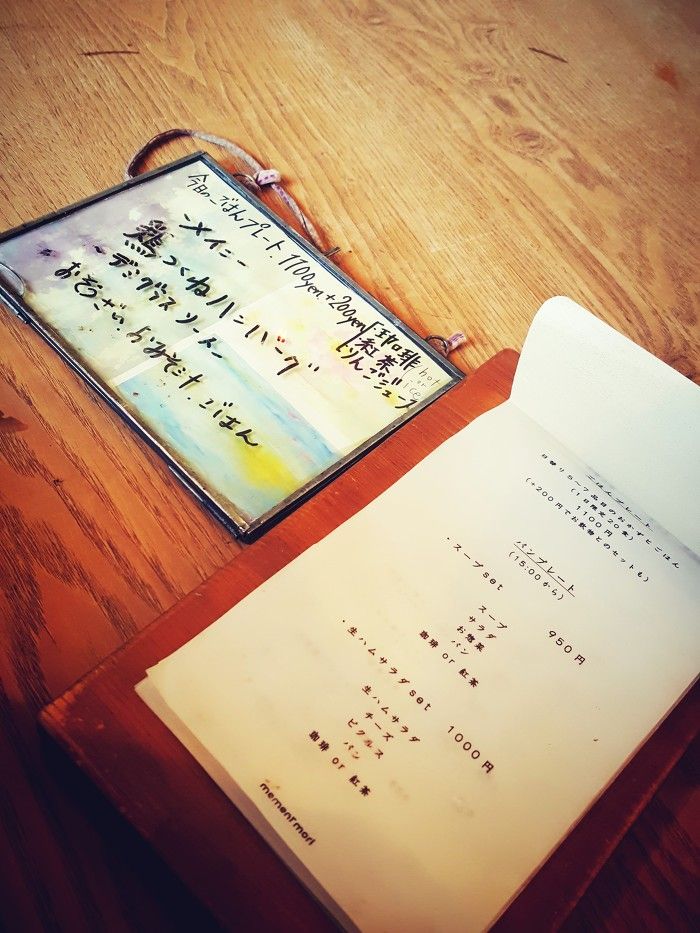 今日のごはんプレート. 1100yen. +200yen
珈琲
紅茶
りんごジュース
hot
or
ice
-メイン-
鶏つくねハンバーグ
~デミグラスソース~
おそうざい、おみそ汁、ごはん
ごはんプレート
日替り5〜7品目のおかずとごはん
(1日限定20食)
1100円
(+200円でお飲物とのセットも)
パンプレート
(15:00から)
・スープset 950円
スープ
サラダ
お惣菜
パン
珈琲 or 紅茶
・生ハムサラダset 1000円
生ハムサラダ
チーズ
ピクルス
パン
珈琲 or 紅茶
mementmori